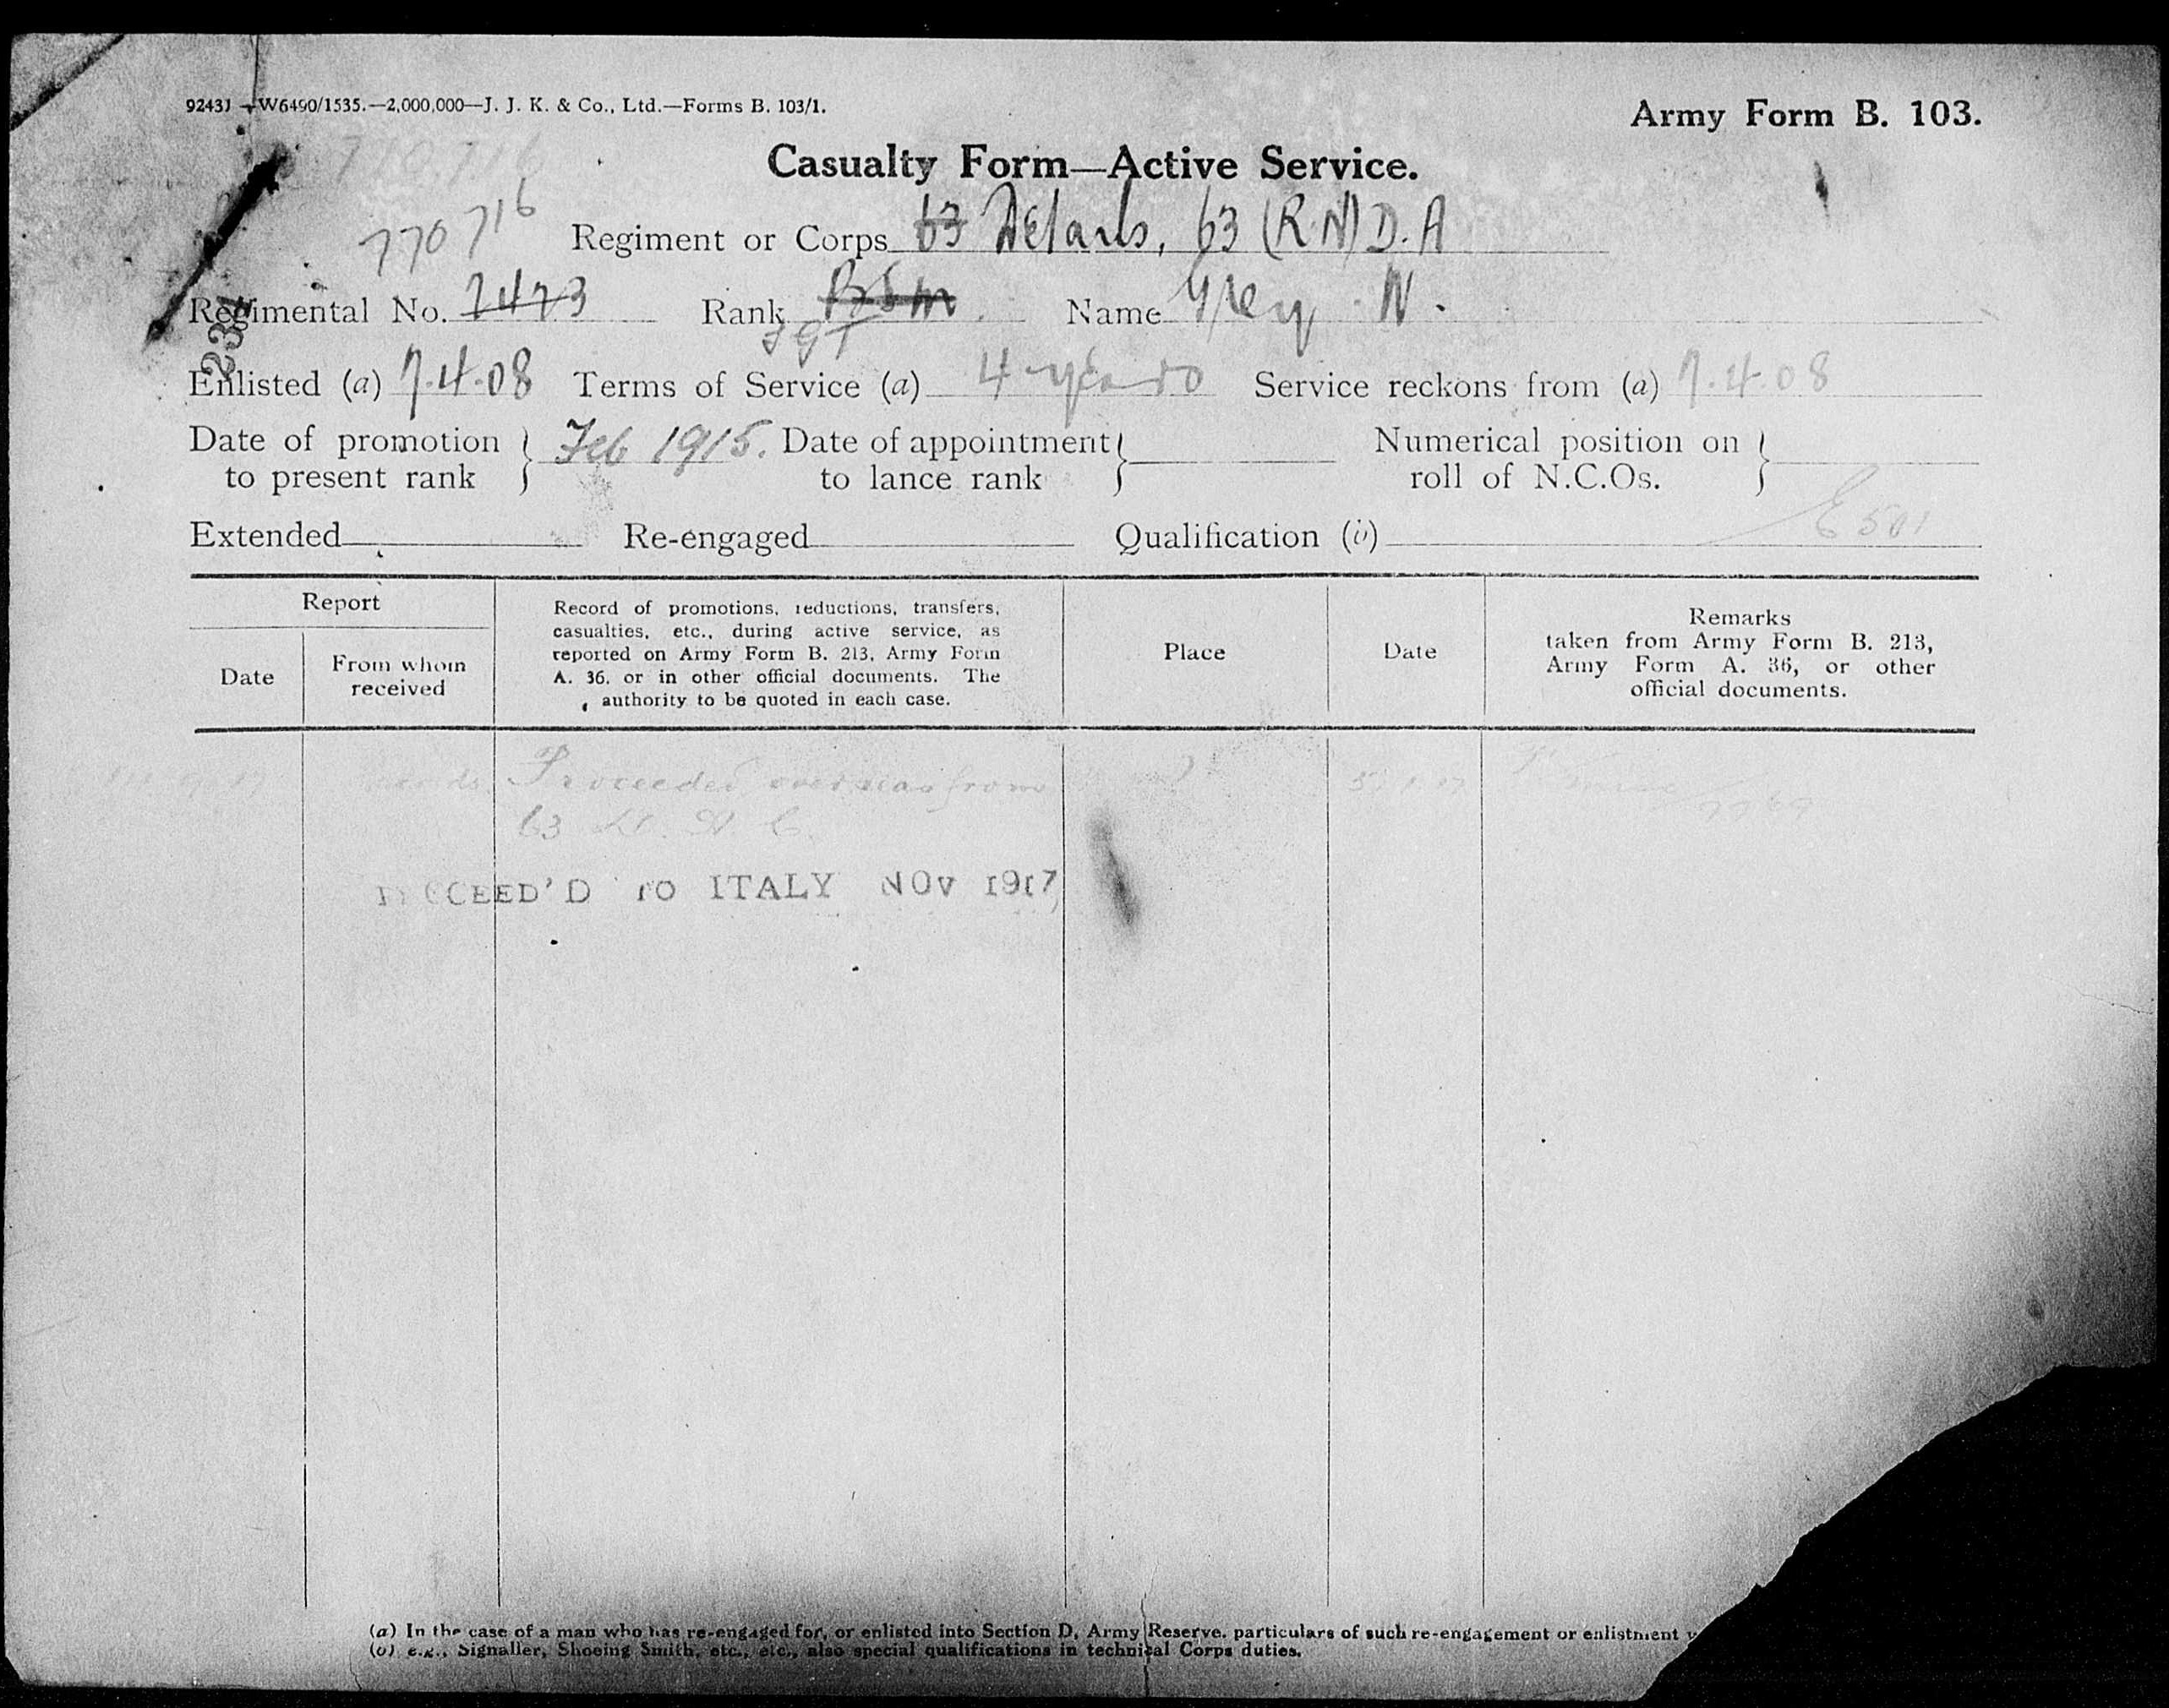 92431 — W6490/1535.—2,000,000—J. J. K. & Co., Ltd.—Forms B. 103/1.
Army Form B. 103.
770716
Casualty Form—Active Service.
770716
Regiment or Corps 63 Details, 63 (RN) D. A
Regimental No. 7473 Rank BSM Name Grey N.
Sgt
Enlisted (a) 7.4.08 Terms of Service (a) 4 years Service reckons from (a) 7.4.08
Date of promotion to present rank } Feb 1915. Date of appointment to lance rank } Numerical position on roll of N.C.Os. }
Extended Re-engaged Qualification (b) E 501
Report
Date
From whom received
Record of promotions, reductions, transfers, casualties, etc., during active service, as reported on Army Form B. 213, Army Form A. 36, or in other official documents. The authority to be quoted in each case.
Place
Date
Remarks taken from Army Form B. 213, Army Form A. 36, or other official documents.
Proceeded overseas from
63 D. A. C.
CEED'D TO ITALY NOV 1917
(a) In the case of a man who has re-engaged for, or enlisted into Section D, Army Reserve, particulars of such re-engagement or enlistment
(b) e.g., Signaller, Shoeing Smith, etc., etc., also special qualifications in technical Corps duties.